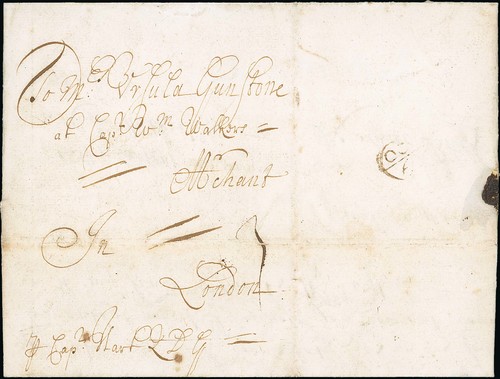 To Mrs Ursula Gunstone
at Capt Wm Walkers =
Mrchant
In
London
℔ Capt Hart Q D G =